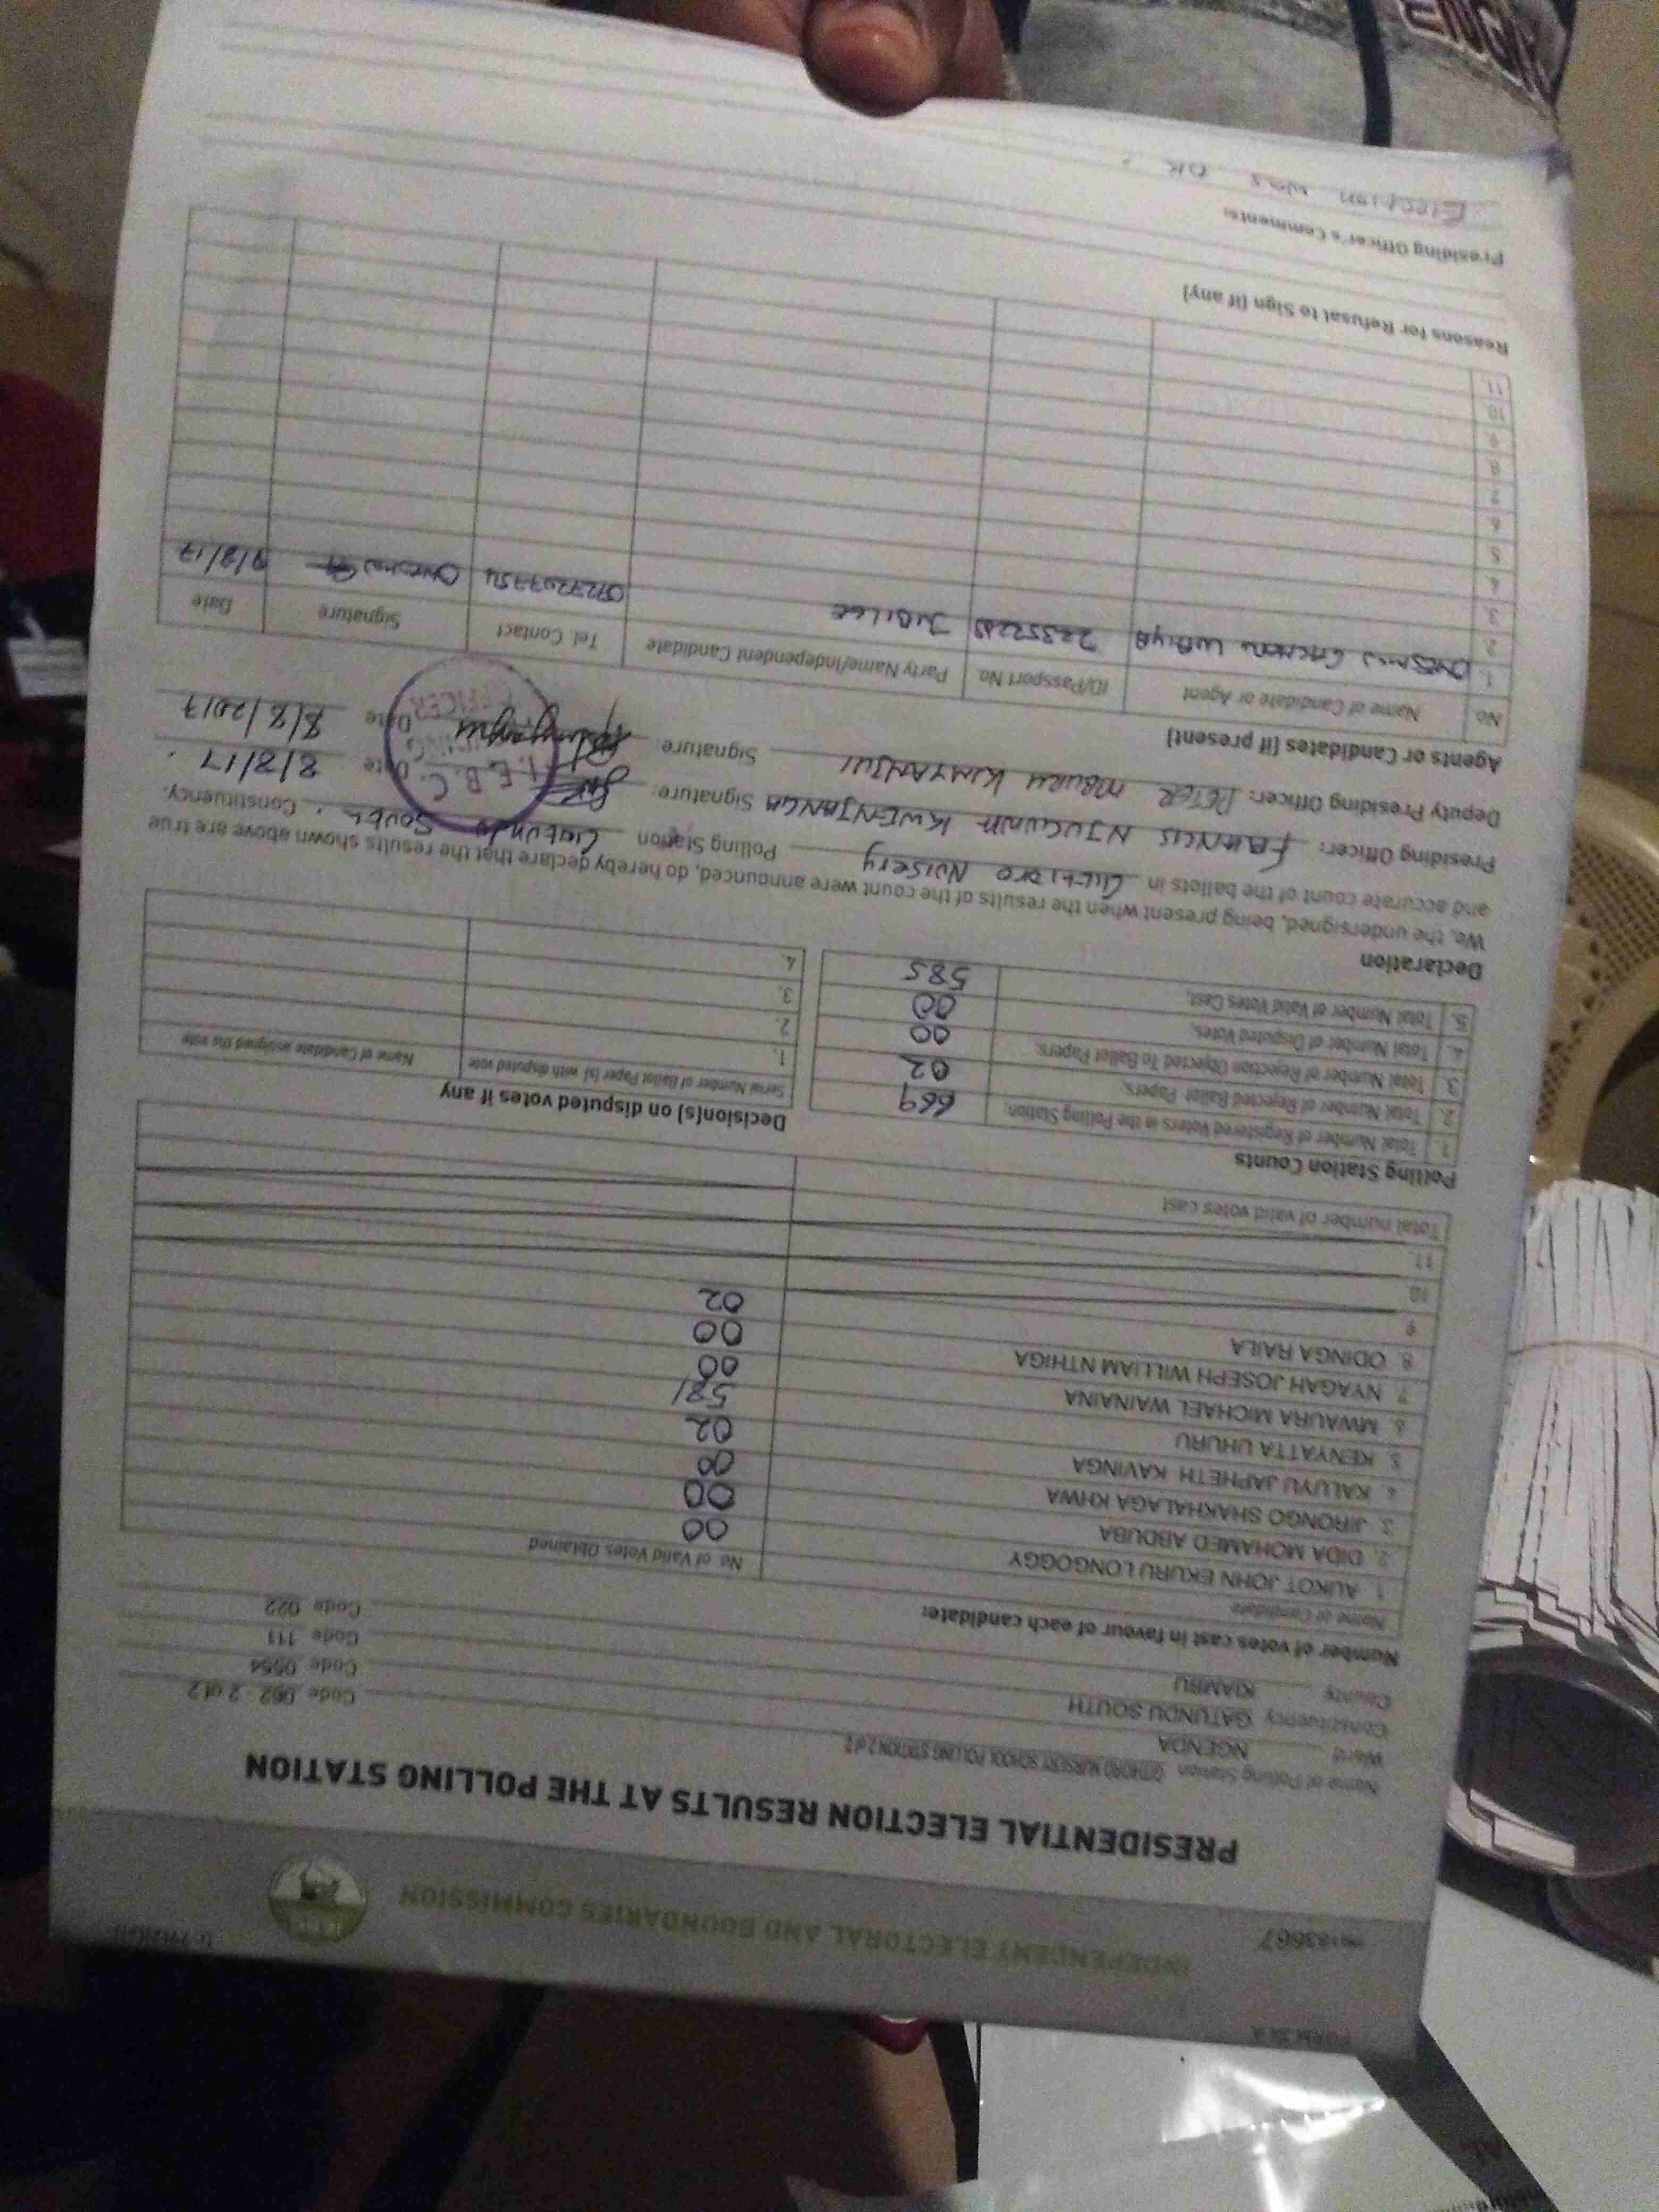 FORM 34A
INDEPENDENT ELECTORAL AND BOUNDARIES COMMISSION
PRESIDENTIAL ELECTION RESULTS AT THE POLLING STATION
Name of Polling Station GITHORO NURSERY SCHOOL POLLING STATION 2 of 2 Code 062 - 2 of 2
Ward NGENDA Code 0554
Constituency GATUNDU SOUTH Code 111
County KIAMBU Code 022
Number of votes cast in favour of each candidate:
Name of Candidate No. of Valid Votes Obtained
1. AUKOT JOHN EKURU LONGOGGY 00
2. DIDA MOHAMED ABDUBA 00
3. JIRONGO SHAKHALAGA KHWA 00
4. KALUYU JAPHETH KAVINGA 02
5. KENYATTA UHURU 581
6. MWAURA MICHAEL WAINAINA 00
7. NYAGAH JOSEPH WILLIAM NTHIGA 00
8. ODINGA RAILA 02
9
10.
11
Total number of valid votes cast
Polling Station Counts
1. Total Number of Registered Voters in the Polling Station. 669
2. Total Number of Rejected Ballot Papers. 02
3. Total Number of Rejection Objected To Ballot Papers. 00
4. Total Number of Disputed Votes. 00
5. Total Number of Valid Votes Cast. 585
Decision(s) on disputed votes if any
Serial Number of Ballot Paper (s) with disputed vote Name of Candidate assigned the vote
1.
2.
3.
4.
Declaration
We, the undersigned, being present when the results of the count were announced, do hereby declare that the results shown above are true
and accurate count of the ballots in Githoro Nursery Polling Station Gatundu South Constituency.
Presiding Officer: FRANCIS NJUGUNA KWENJANGA Signature: Date 8/8/17
Deputy Presiding Officer: PETER MBURU KINYANJUI Signature: Date 8/8/2017
I.E.B.C.
OFFICER
Agents or Candidates (if present)
No. Name of Candidate or Agent ID/Passport No. Party Name/Independent Candidate Tel. Contact Signature Date
1. JUBILEE 9/8/17
2
3.
4
5
6
7
8
9
10
11
Reasons for Refusal to Sign (if any)
Presiding Officer's Comments:
Election was OK